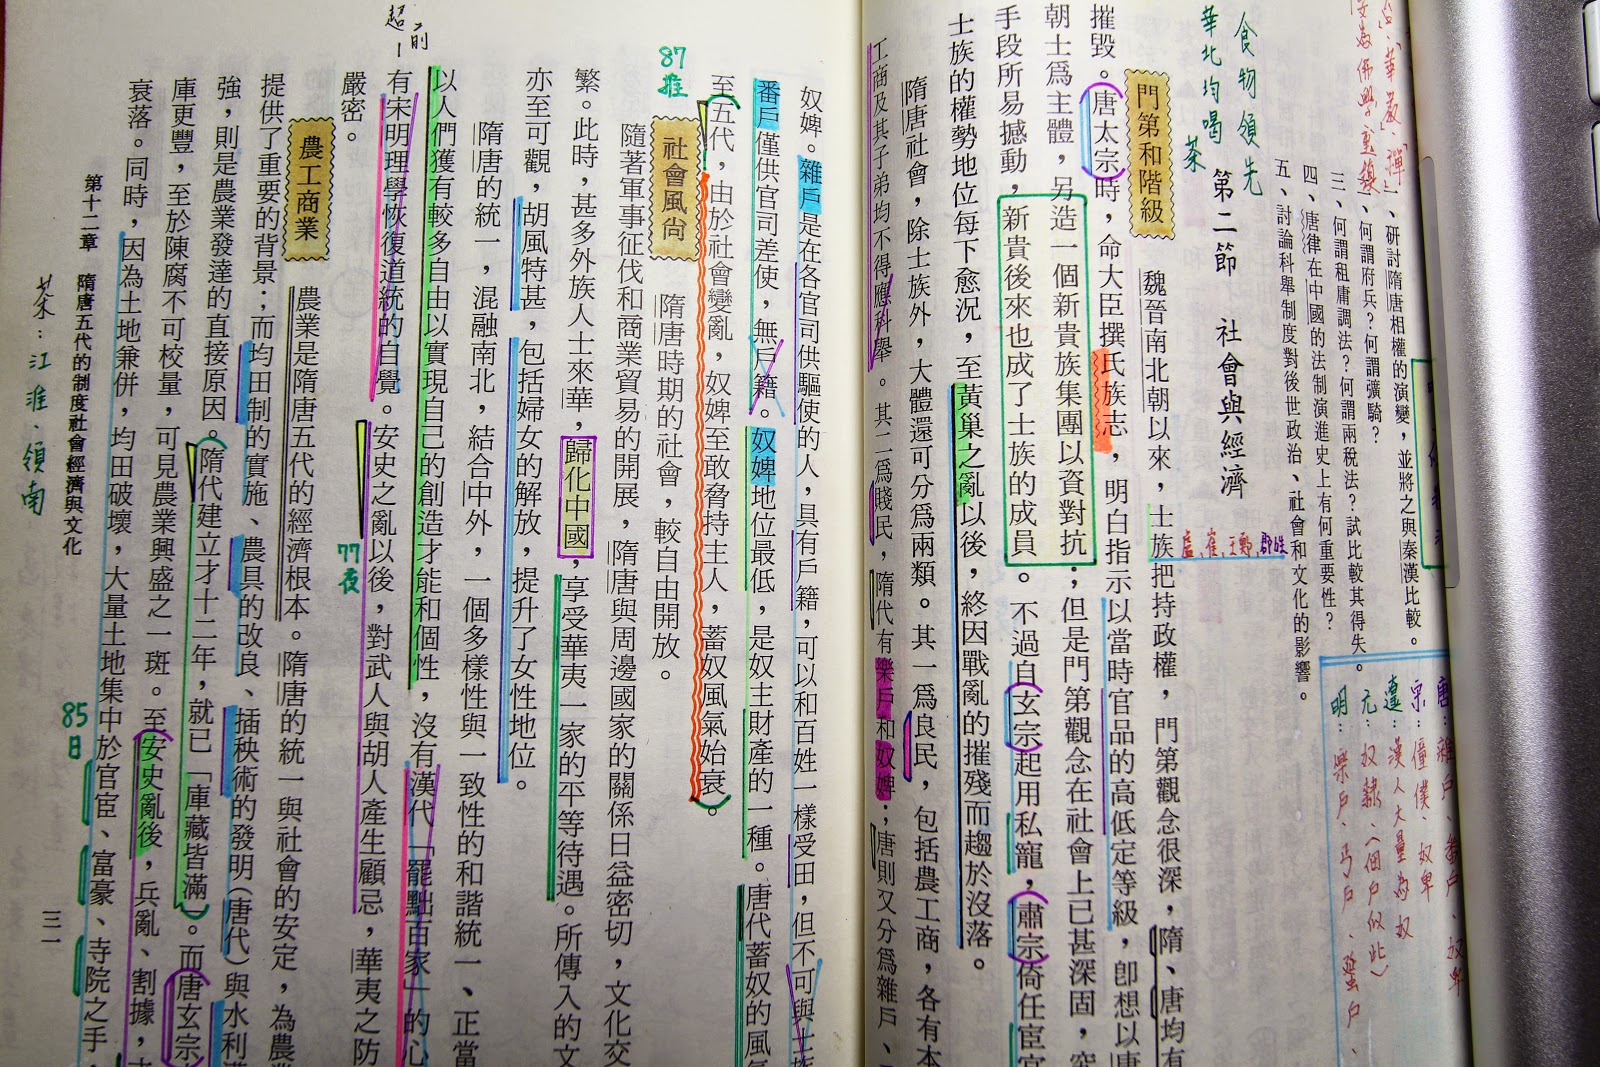 食物領先
華北均喝
茶
一、研討隋唐相權的演變，並將之與秦漢比較。
二、何謂府兵？何謂彍騎？
三、何謂租庸調法？何謂兩稅法？試比較其得失。
四、唐律在中國的法制演進史上有何重要性？
五、討論科舉制度對後世政治、社會和文化的影響。
唐：雜戶、番戶、奴婢
宋：僮僕、奴婢
遼：漢人大量為奴
元：奴隸（佃戶似此）
明：樂戶、丐戶、蜑戶、
第二節　社會與經濟
盧、崔、王、鄭
門第和階級
魏晉南北朝以來，士族把持政權，門第觀念很深，隋、唐均有
摧毀。唐太宗時，命大臣撰氏族志，明白指示以當時官品的高低定等級，卽想以唐
朝士爲主體，另造一個新貴族集團以資對抗；但是門第觀念在社會上已甚深固，
手段所易撼動，新貴後來也成了士族的成員。不過自玄宗起用私寵，肅宗倚任宦官
士族的權勢地位每下愈況，至黃巢之亂以後，終因戰亂的摧殘而趨於沒落。
隋唐社會，除士族外，大體還可分爲兩類。其一爲良民，包括農工商，各有本
工商及其子弟均不得應科舉。其二爲賤民，隋代有樂戶和奴婢；唐則又分爲雜戶、
奴婢。雜戶是在各官司供驅使的人，具有戶籍，可以和百姓一樣受田，但不可與士族
番戶僅供官司差使，無戶籍。奴婢地位最低，是奴主財產的一種。唐代蓄奴的風氣
至五代，由於社會變亂，奴婢至敢脅持主人，蓄奴風氣始衰。
87推
社會風尚
隋唐時期的社會，較自由開放。
隨著軍事征伐和商業貿易的開展，隋唐與周邊國家的關係日益密切，文化交
繁。此時，甚多外族人士來華，歸化中國，享受華夷一家的平等待遇。所傳入的文
亦至可觀，胡風特甚，包括婦女的解放，提升了女性地位。
隋唐的統一，混融南北，結合中外，一個多樣性與一致性的和諧統一、正當
以人們獲有較多自由以實現自己的創造才能和個性，沒有漢代「罷黜百家」的心
超前
有宋明理學恢復道統的自覺。安史之亂以後，對武人與胡人產生顧忌，華夷之防
77夜
嚴密。
農工商業
農業是隋唐五代的經濟根本。隋唐的統一與社會的安定，為農業
提供了重要的背景；而均田制的實施、農具的改良、插秧術的發明（唐代）與水利
強，則是農業發達的直接原因。隋代建立才十二年，就已「庫藏皆滿」。而唐玄宗
庫更豐，至於陳腐不可校量，可見農業興盛之一斑。至安史亂後，兵亂、割據，
衰落。同時，因為土地兼併，均田破壞，大量土地集中於官宦、富豪、寺院之手
85日
第十二章　隋唐五代的制度社會經濟與文化
三一
茶：江淮、領南